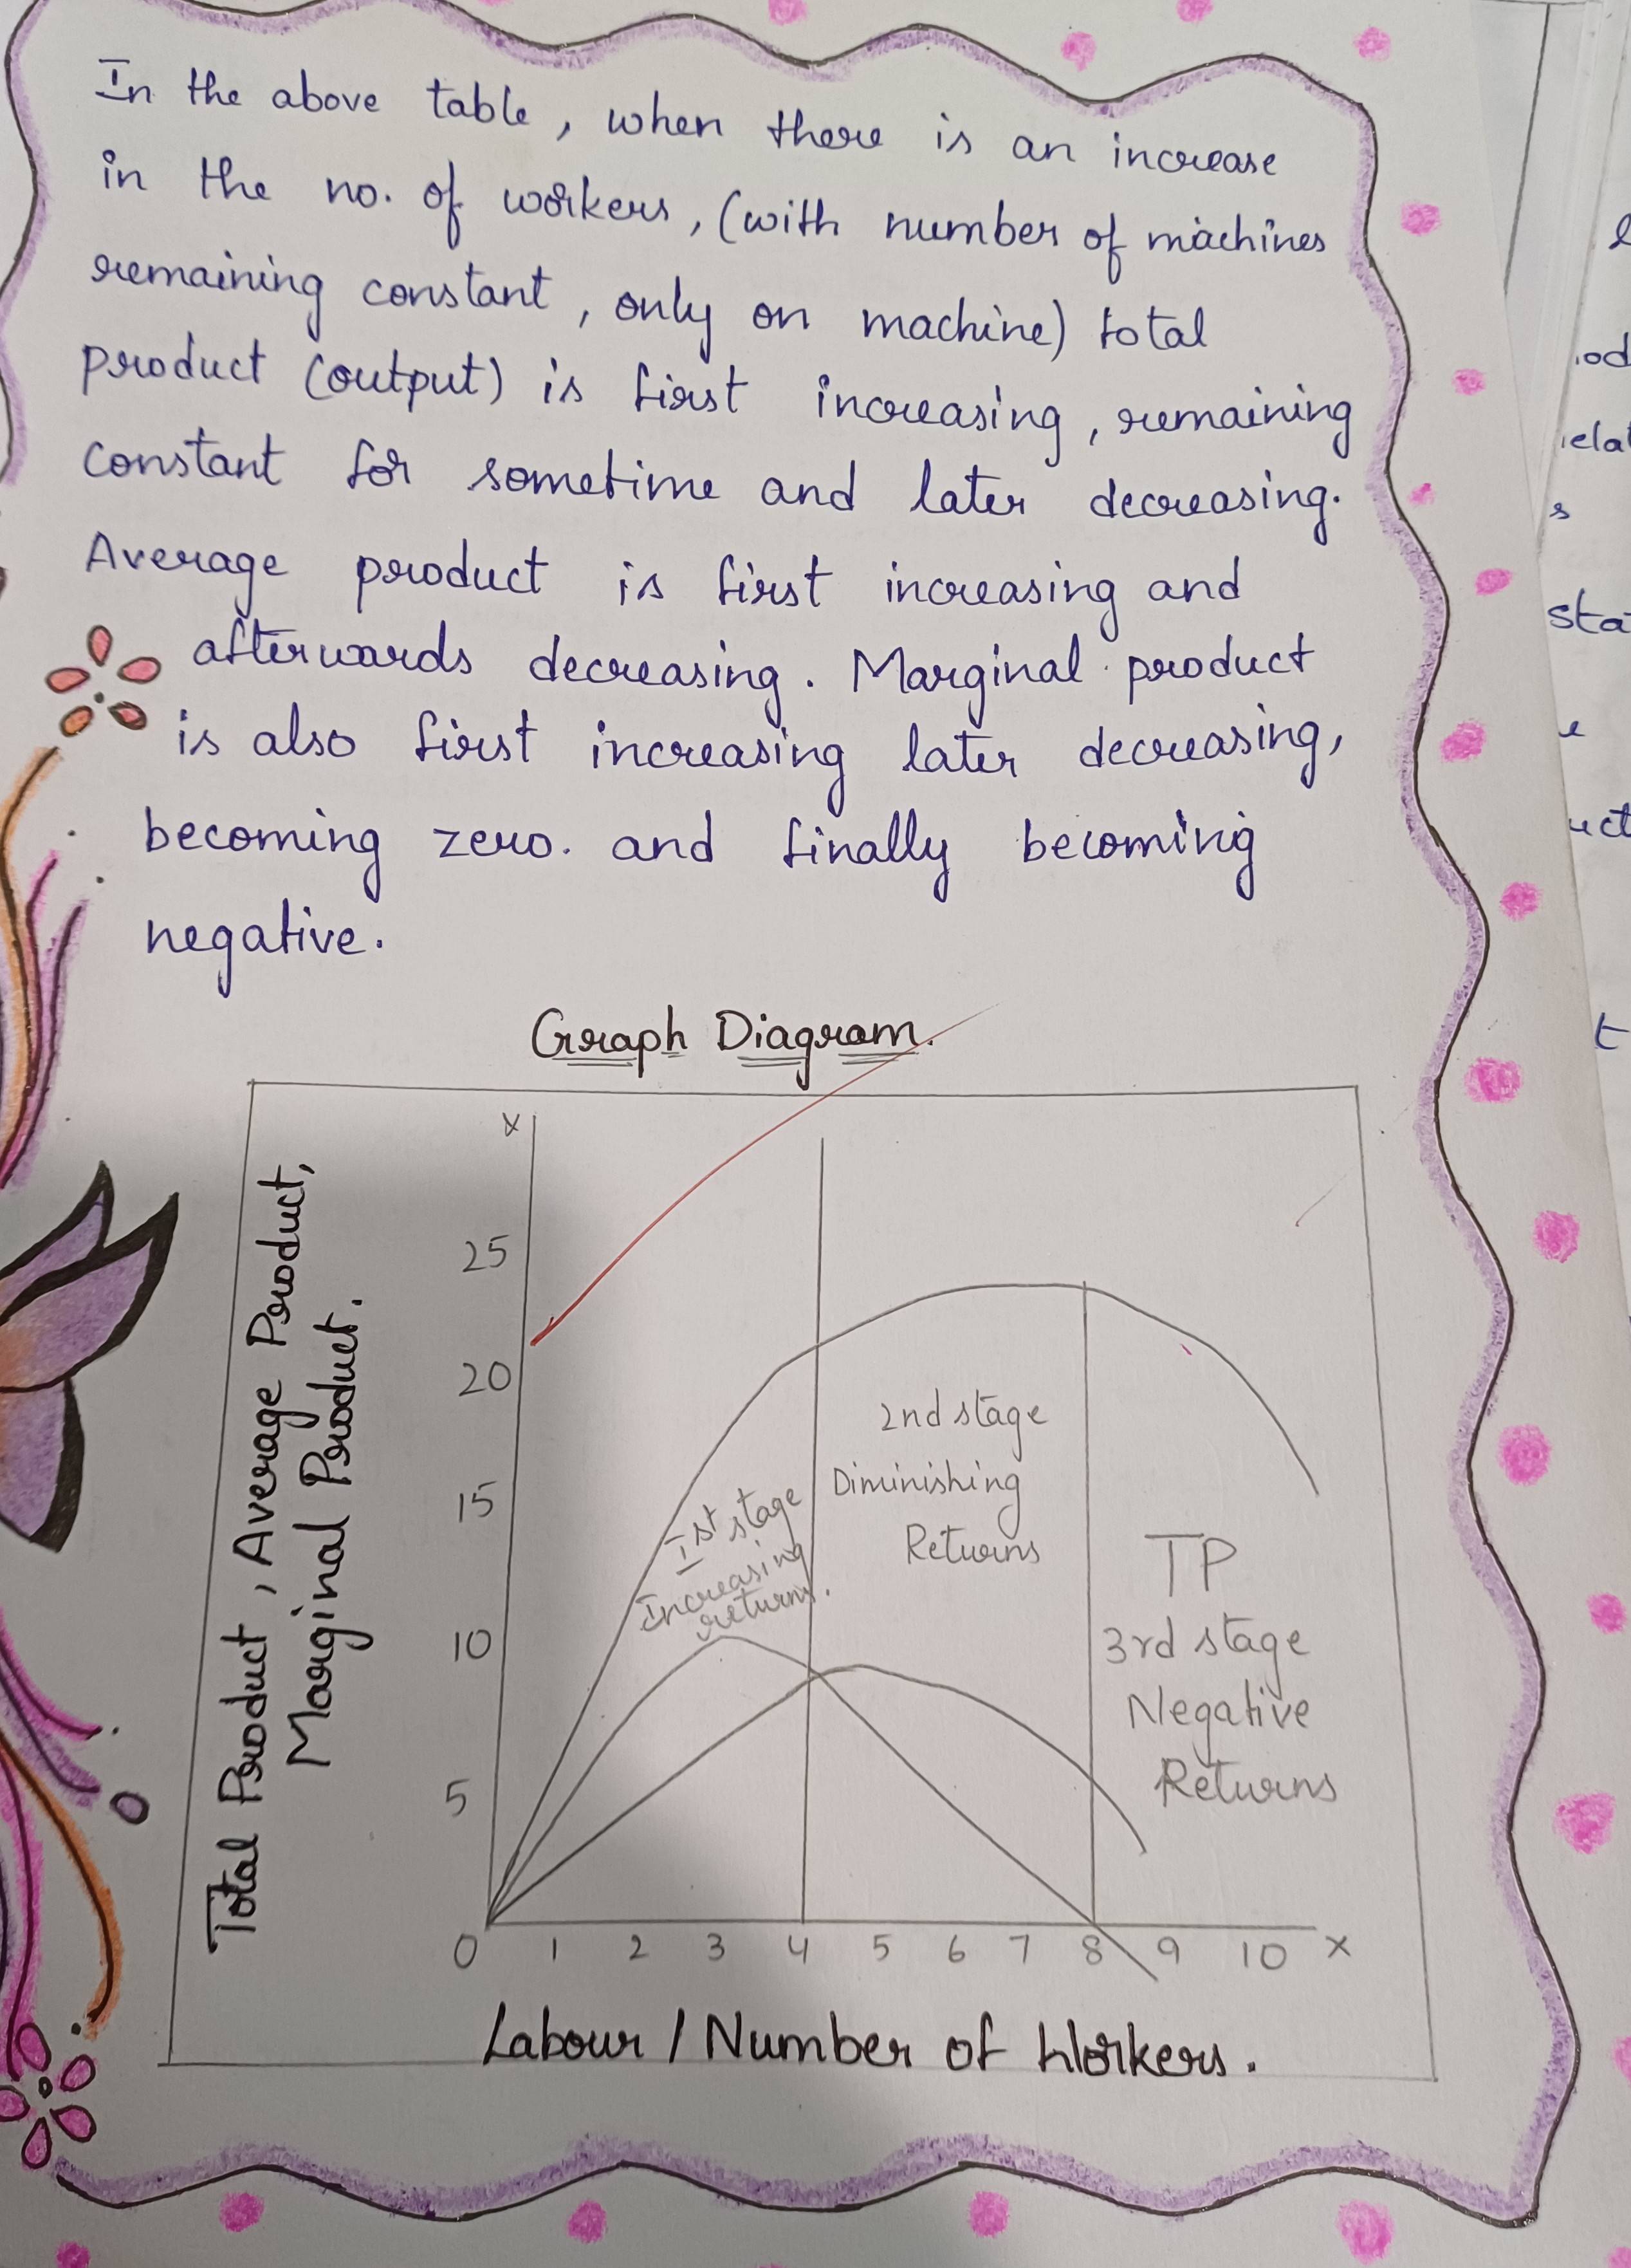 In the above table, when there is an increase
in the no. of workers, (with number of machines
remaining constant, only on machine) total
product (output) is first increasing, remaining
constant for sometime and later decreasing.
Average product is first increasing and
afterwards decreasing. Marginal product
is also first increasing later decreasing,
becoming zero. and finally becoming
negative.
Graph Diagram.
Total Product, Average Product,
Marginal Product.
x
25
20
15
10
5
Ist stage
Increasing
returns.
2nd stage
Diminishing
Returns
TP
3rd stage
Negative
Returns
0 1 2 3 4 5 6 7 8 9 10 x
Labour / Number of Workers.